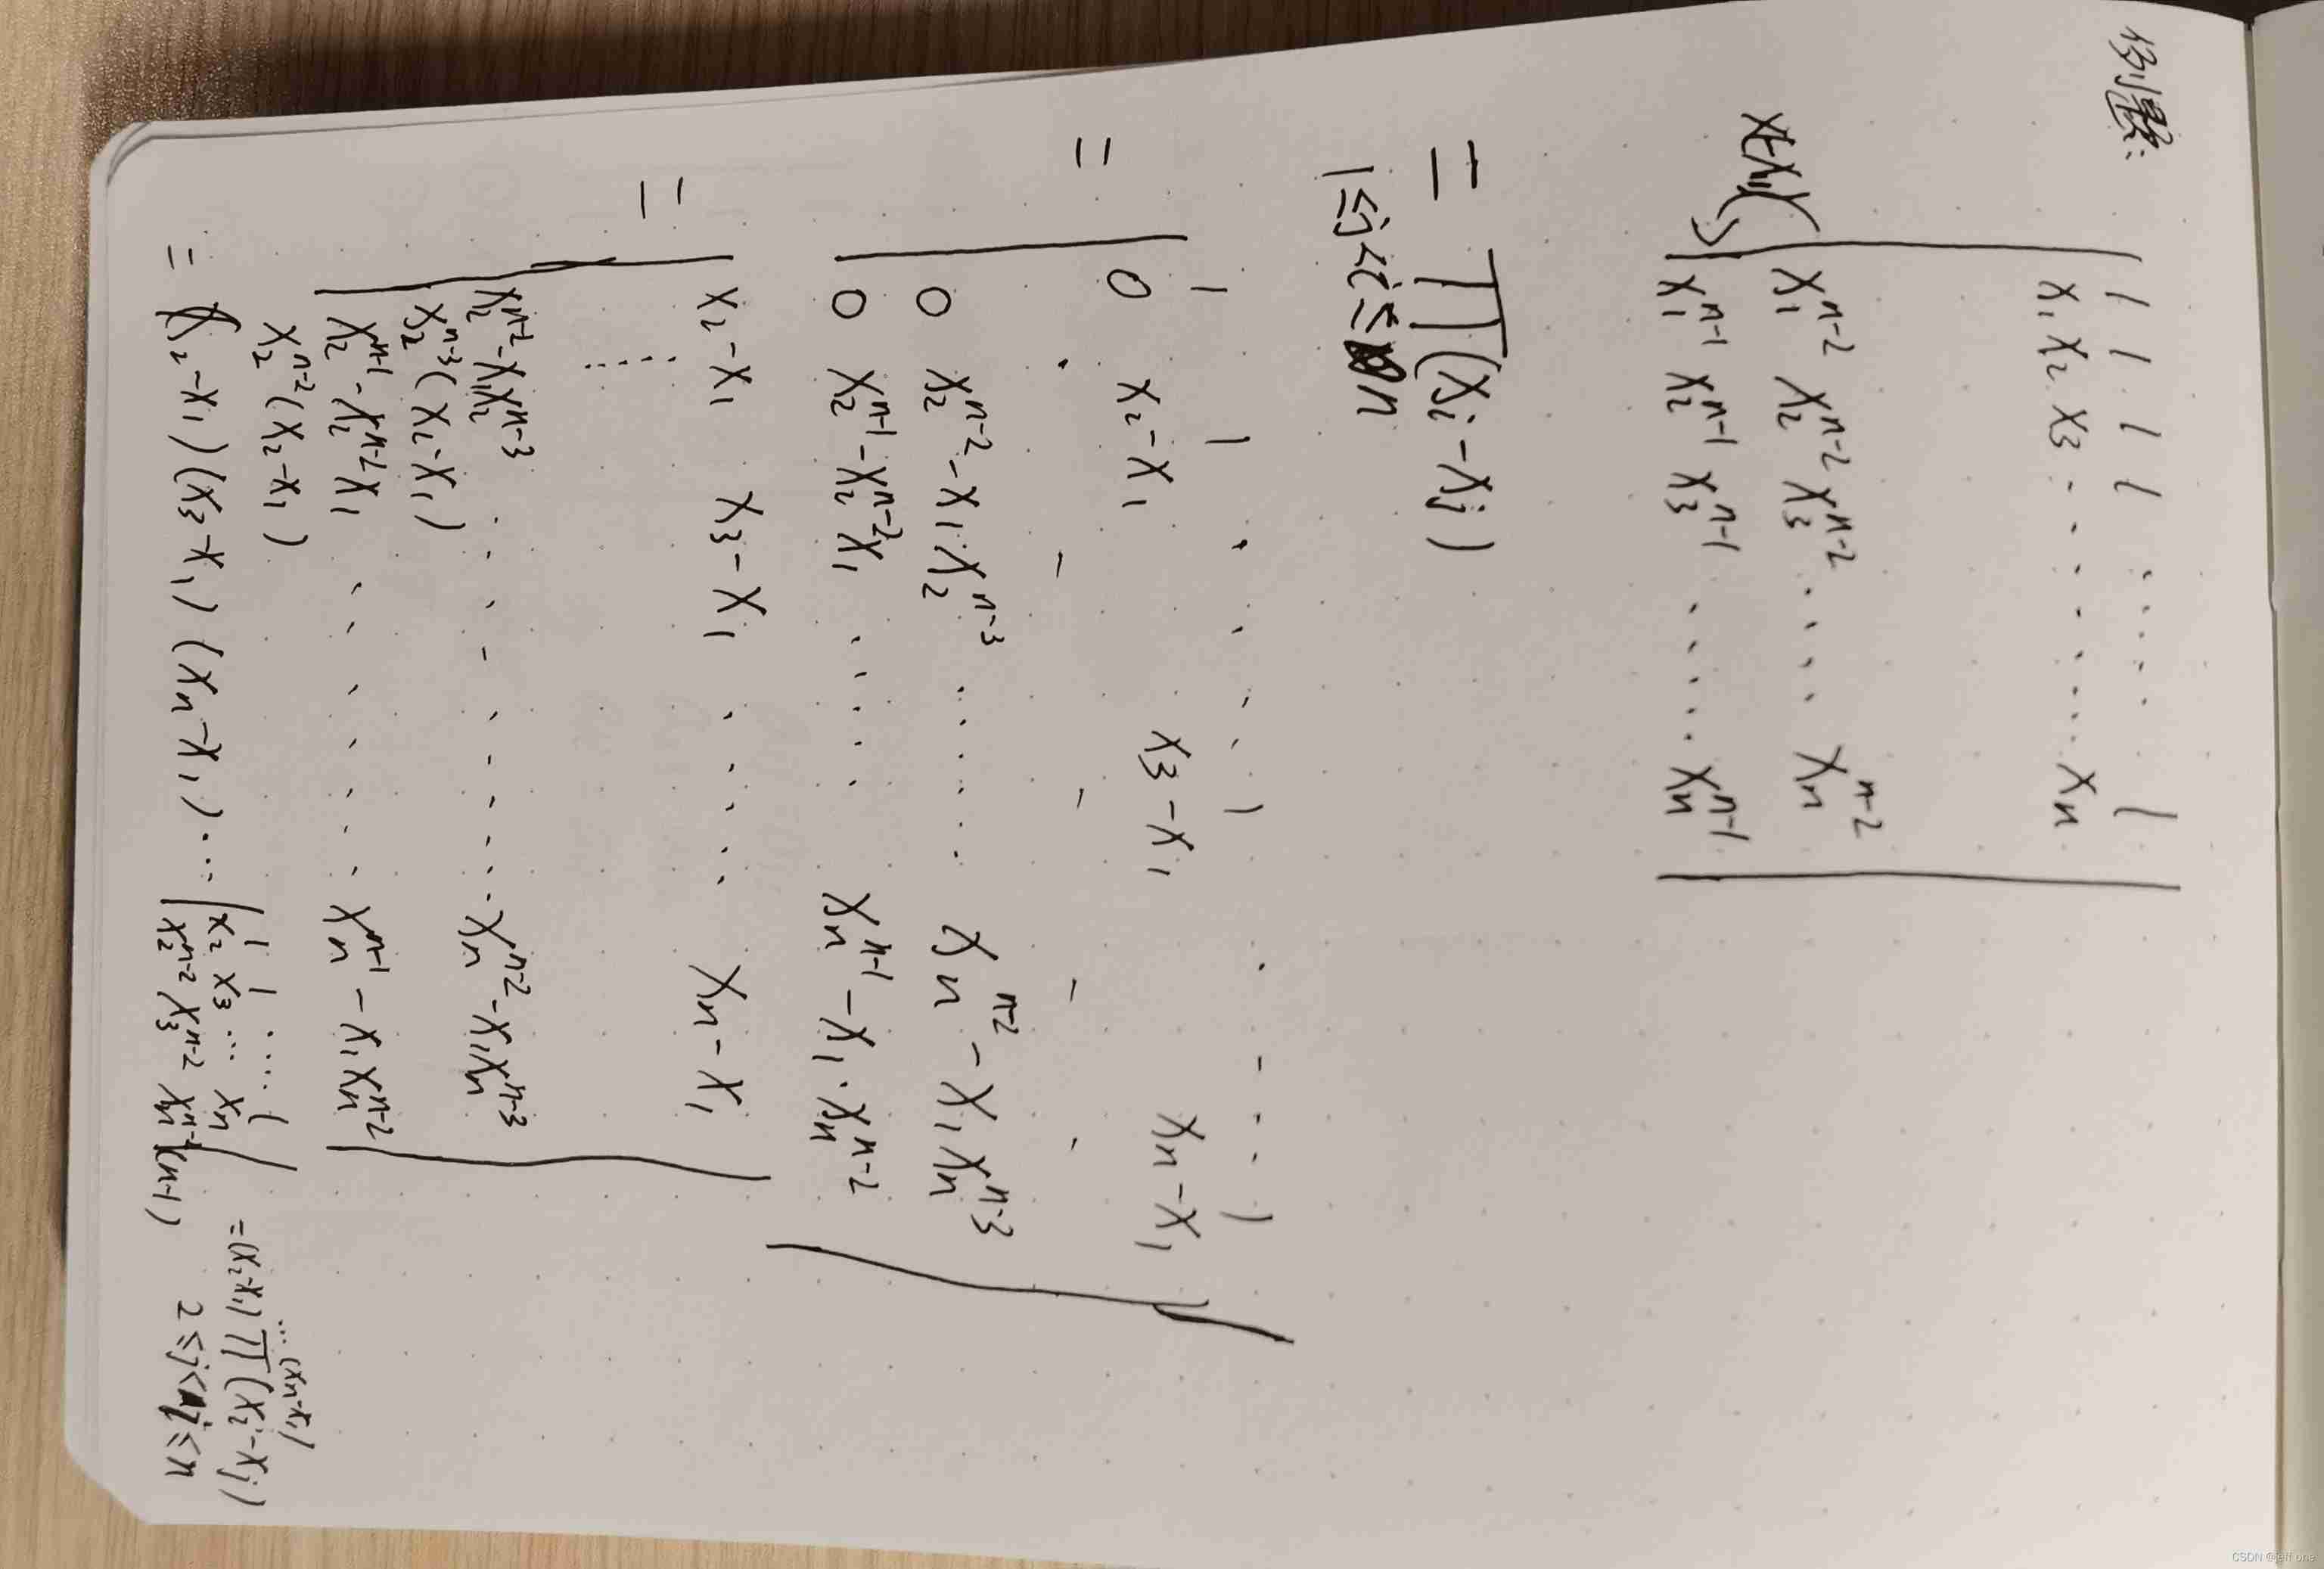 例题:
1 1 1 1 ..... 1
x₁ x₂ x₃ ....... xₙ
x₁ⁿ⁻² x₂ⁿ⁻² x₃ⁿ⁻² .... xₙⁿ⁻²
x₁ⁿ⁻¹ x₂ⁿ⁻¹ x₃ⁿ⁻¹ ..... xₙⁿ⁻¹
= ∏(xᵢ-xⱼ)
1≤j<i≤n
1 1 ..... 1 .... 1
0 x₂-x₁ x₃-x₁ xₙ-x₁
=
0 x₂ⁿ⁻²-x₁·x₂ⁿ⁻³ ..... xₙⁿ⁻²-x₁xₙⁿ⁻³
0 x₂ⁿ⁻¹-x₂ⁿ⁻²x₁ .... xₙⁿ⁻¹-x₁·xₙⁿ⁻²
x₂-x₁ x₃-x₁ .... xₙ-x₁
=
x₂ⁿ⁻²-x₁x₂ⁿ⁻³ ........ xₙⁿ⁻²-x₁xₙⁿ⁻³
x₂ⁿ⁻³(x₂-x₁)
x₂ⁿ⁻¹-x₂ⁿ⁻²x₁ ....... xₙⁿ⁻¹-x₁xₙⁿ⁻²
x₂ⁿ⁻²(x₂-x₁)
= (x₂-x₁)(x₃-x₁)(xₙ-x₁)....
1 1 .... 1
x₂ x₃ ... xₙ
x₂ⁿ⁻² x₃ⁿ⁻² (n-1)
...(xₙ-x₁)
=(x₂-x₁)∏(xᵢ-xⱼ)
2≤j<i≤n
CSDN @jeff one